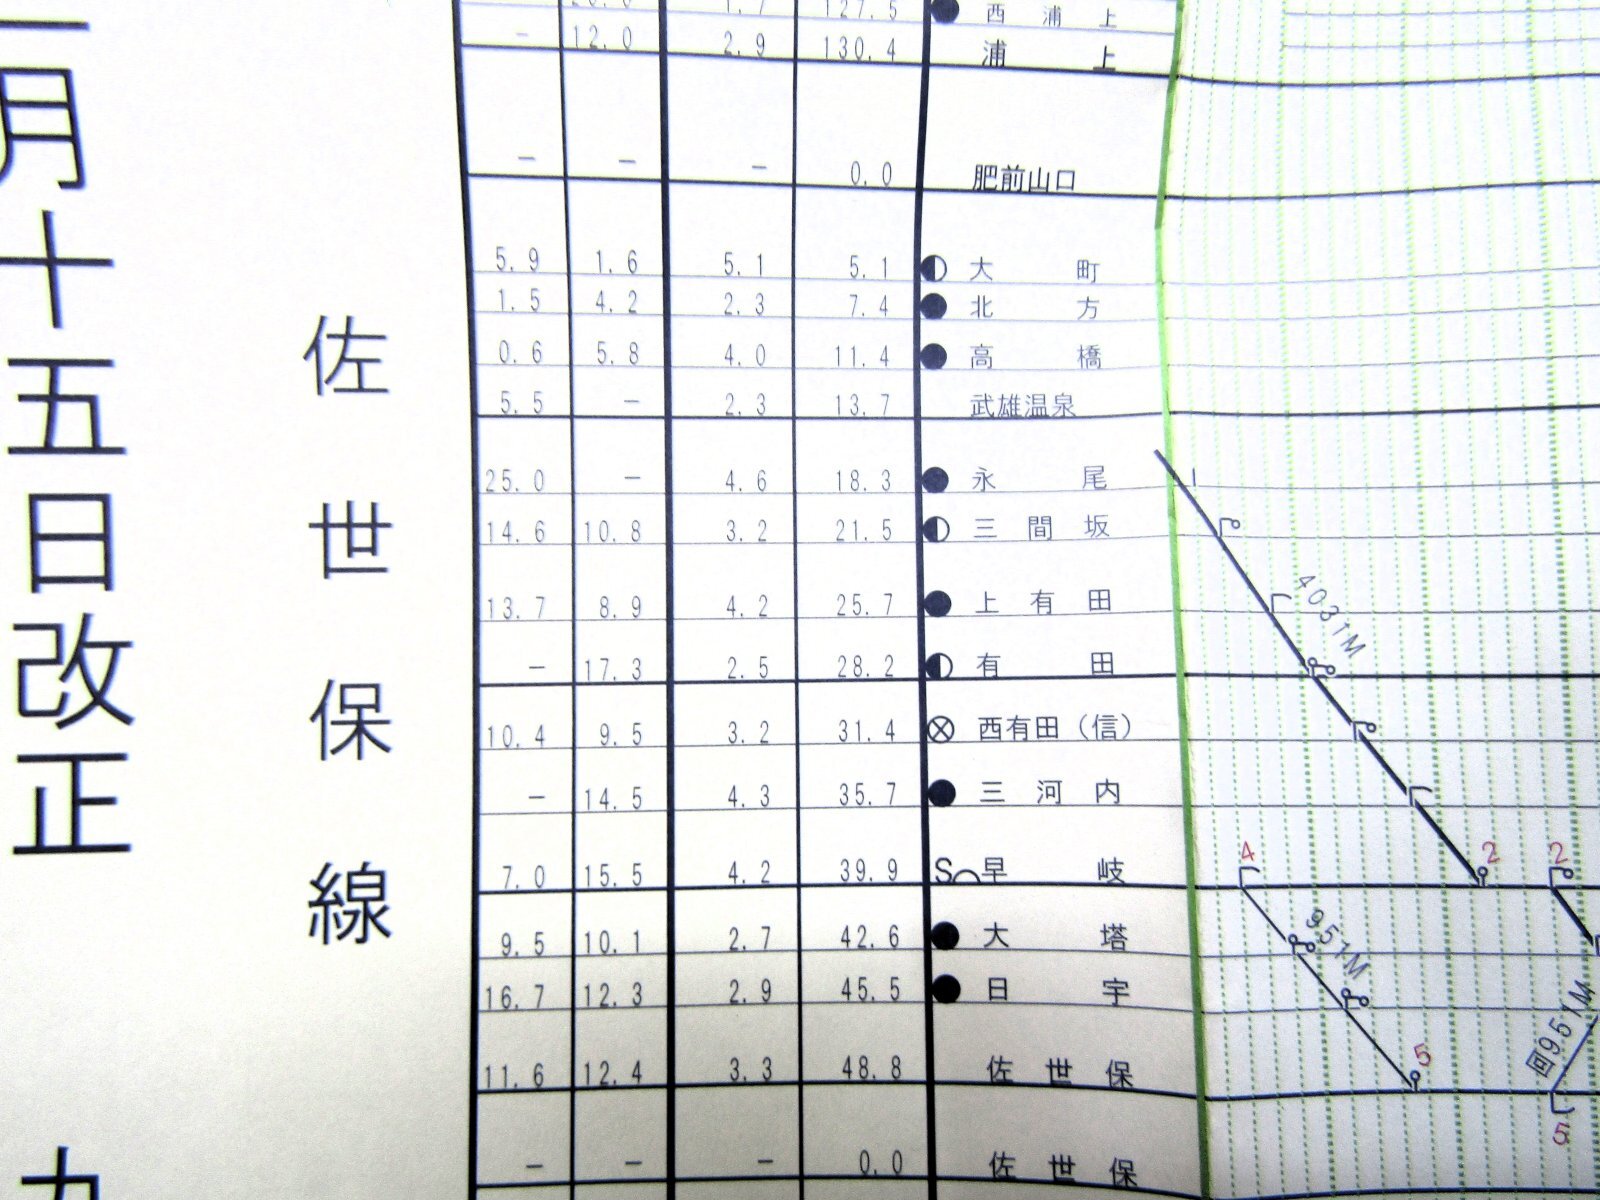 月十五日改正
九
佐世保線
1.7 127.5 西浦上
- 12.0 2.9 130.4 浦上
- - - 0.0 肥前山口
5.9 1.6 5.1 5.1 大町
1.5 4.2 2.3 7.4 北方
0.6 5.8 4.0 11.4 高橋
5.5 - 2.3 13.7 武雄温泉
25.0 - 4.6 18.3 永尾
14.6 10.8 3.2 21.5 三間坂
13.7 8.9 4.2 25.7 上有田
- 17.3 2.5 28.2 有田
10.4 9.5 3.2 31.4 西有田（信）
- 14.5 4.3 35.7 三河内
7.0 15.5 4.2 39.9 S 早岐
9.5 10.1 2.7 42.6 大塔
16.7 12.3 2.9 45.5 日宇
11.6 12.4 3.3 48.8 佐世保
- - - 0.0 佐世保
1
4031M
4
2
2
951M
5
回951M
5